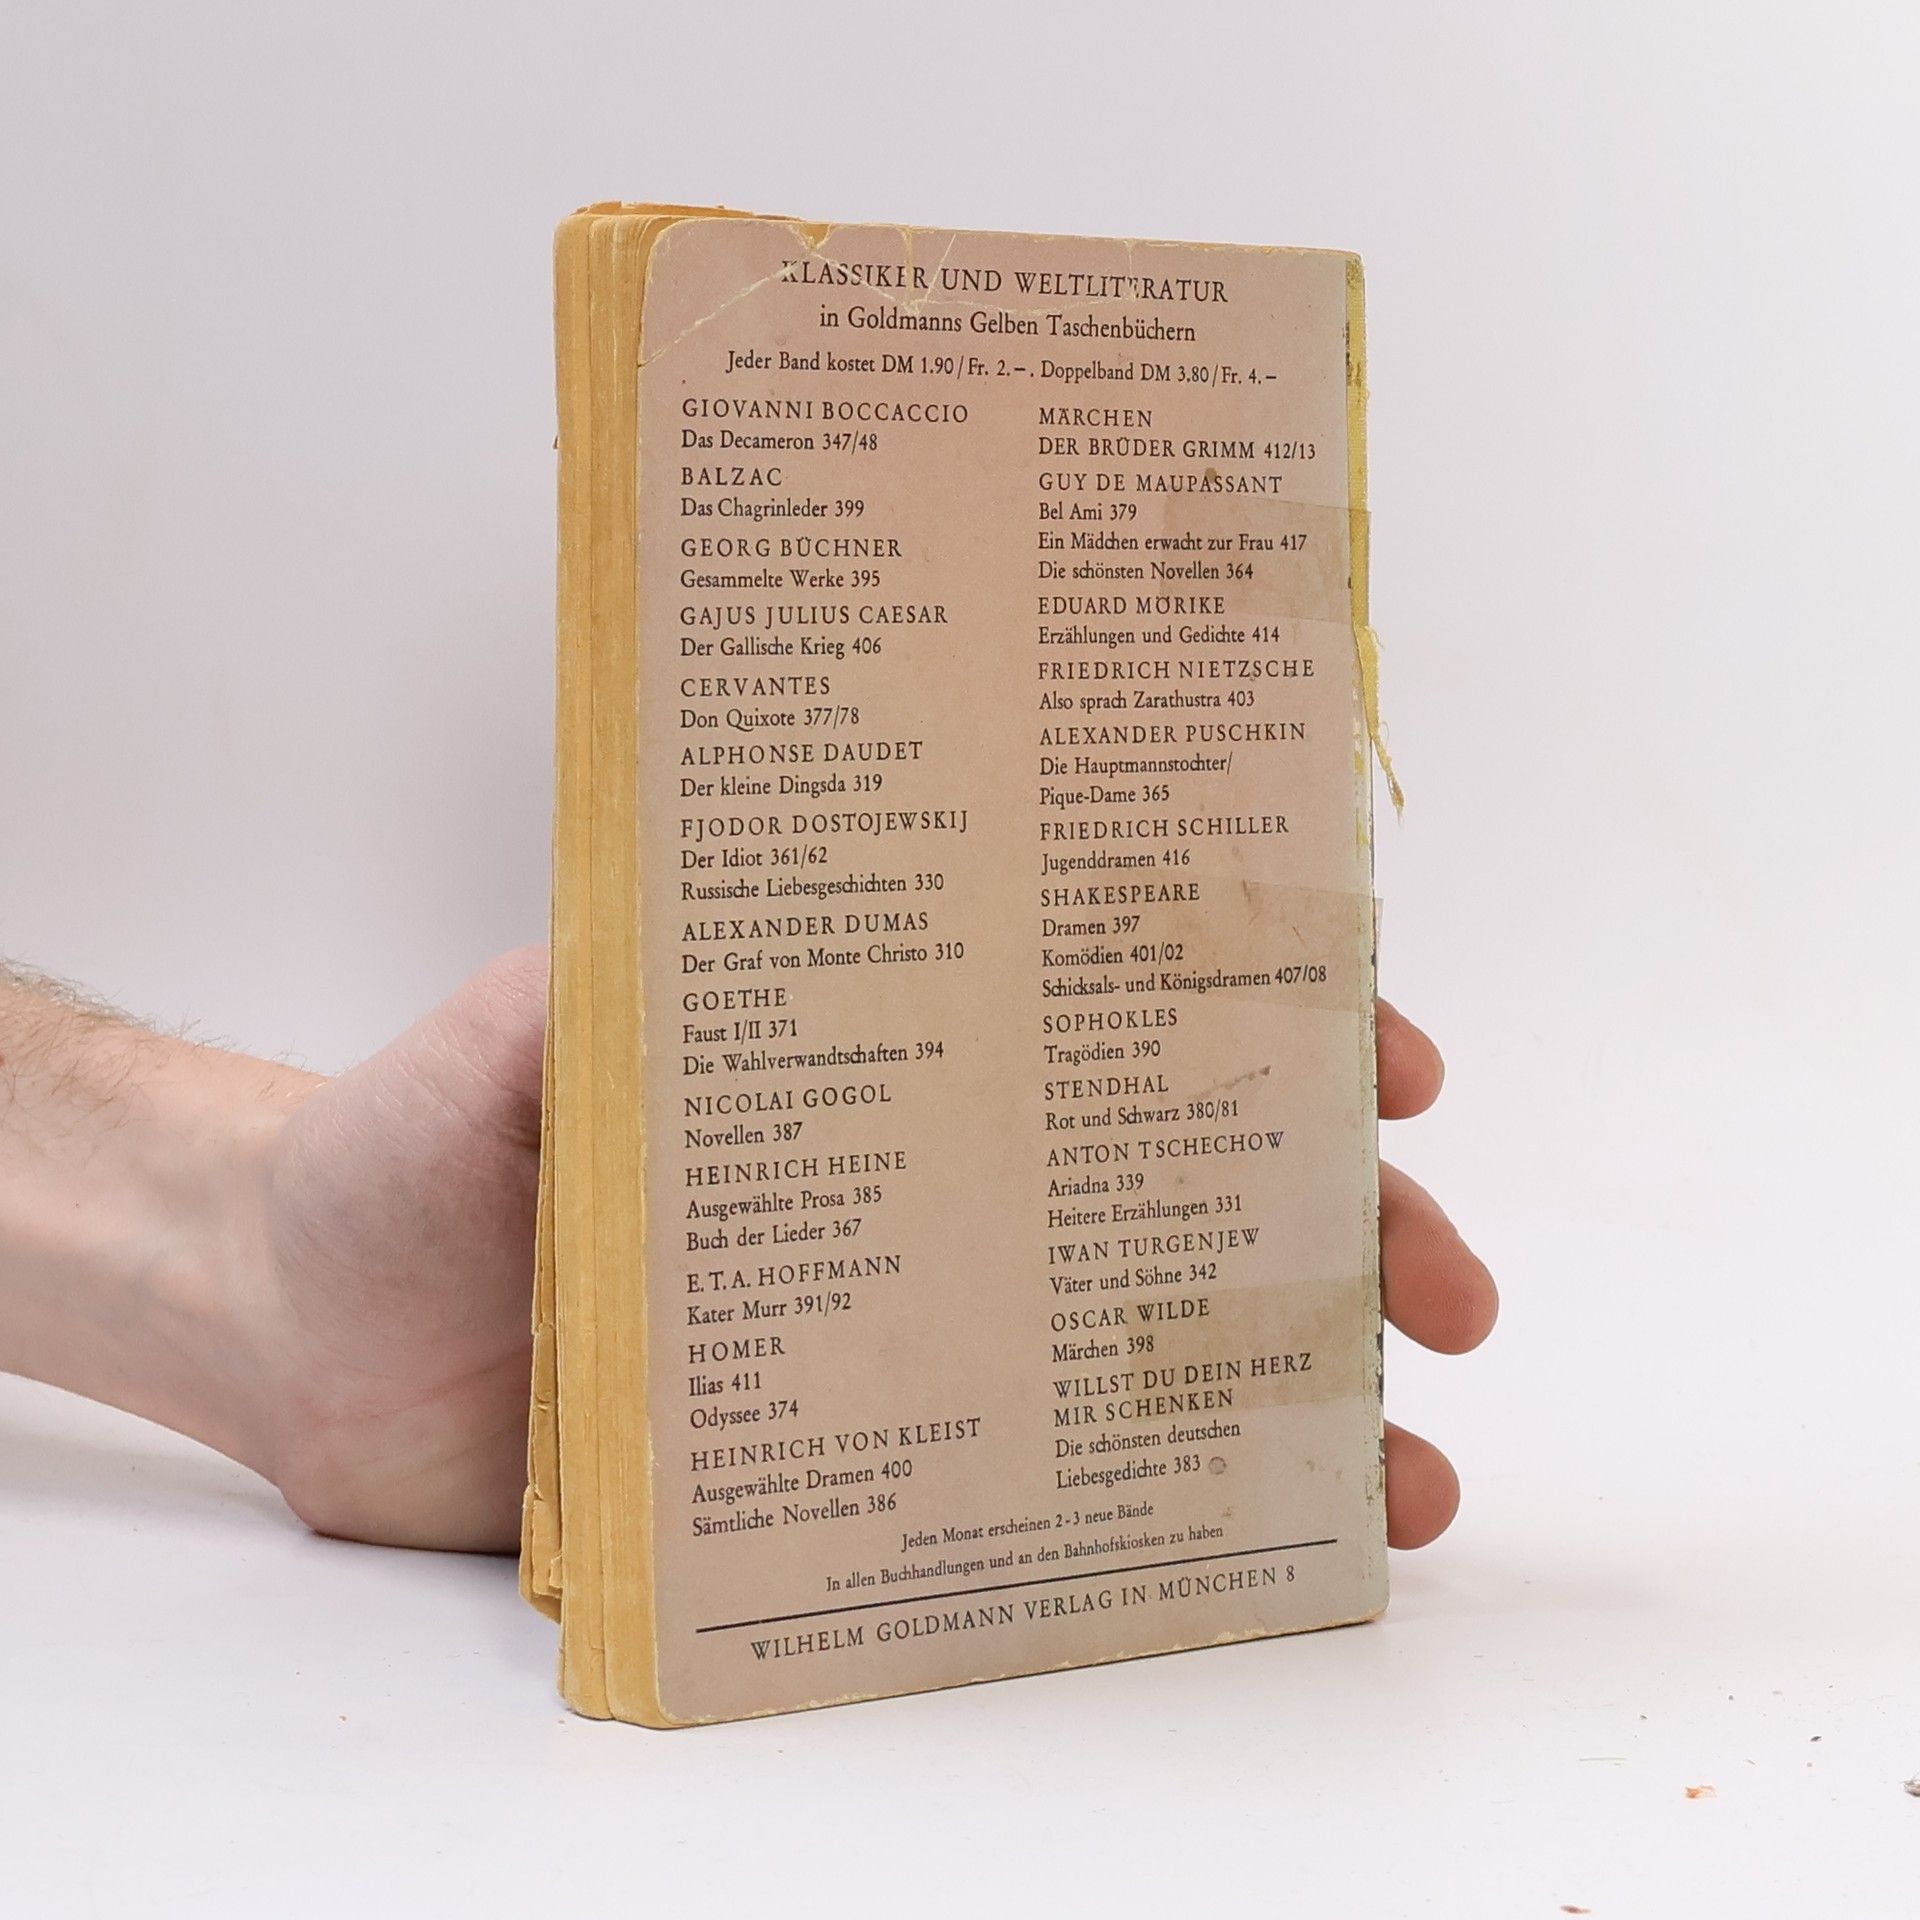 KLASSIKER UND WELTLITERATUR
in Goldmanns Gelben Taschenbüchern
Jeder Band kostet DM 1.90/Fr. 2.–. Doppelband DM 3.80/Fr. 4.–
GIOVANNI BOCCACCIO
Das Decameron 347/48
BALZAC
Das Chagrinleder 399
GEORG BÜCHNER
Gesammelte Werke 395
GAJUS JULIUS CAESAR
Der Gallische Krieg 406
CERVANTES
Don Quixote 377/78
ALPHONSE DAUDET
Der kleine Dingsda 319
FJODOR DOSTOJEWSKIJ
Der Idiot 361/62
Russische Liebesgeschichten 330
ALEXANDER DUMAS
Der Graf von Monte Christo 310
GOETHE
Faust I/II 371
Die Wahlverwandtschaften 394
NICOLAI GOGOL
Novellen 387
HEINRICH HEINE
Ausgewählte Prosa 385
Buch der Lieder 367
E.T.A. HOFFMANN
Kater Murr 391/92
HOMER
Ilias 411
Odyssee 374
HEINRICH VON KLEIST
Ausgewählte Dramen 400
Sämtliche Novellen 386
MÄRCHEN
DER BRÜDER GRIMM 412/13
GUY DE MAUPASSANT
Bel Ami 379
Ein Mädchen erwacht zur Frau 417
Die schönsten Novellen 364
EDUARD MÖRIKE
Erzählungen und Gedichte 414
FRIEDRICH NIETZSCHE
Also sprach Zarathustra 403
ALEXANDER PUSCHKIN
Die Hauptmannstochter/
Pique-Dame 365
FRIEDRICH SCHILLER
Jugenddramen 416
SHAKESPEARE
Dramen 397
Komödien 401/02
Schicksals- und Königsdramen 407/08
SOPHOKLES
Tragödien 390
STENDHAL
Rot und Schwarz 380/81
ANTON TSCHECHOW
Ariadna 339
Heitere Erzählungen 331
IWAN TURGENJEW
Väter und Söhne 342
OSCAR WILDE
Märchen 398
WILLST DU DEIN HERZ
MIR SCHENKEN
Die schönsten deutschen
Liebesgedichte 383
Jeden Monat erscheinen 2-3 neue Bände
In allen Buchhandlungen und an den Bahnhofskiosken zu haben
WILHELM GOLDMANN VERLAG IN MÜNCHEN 8